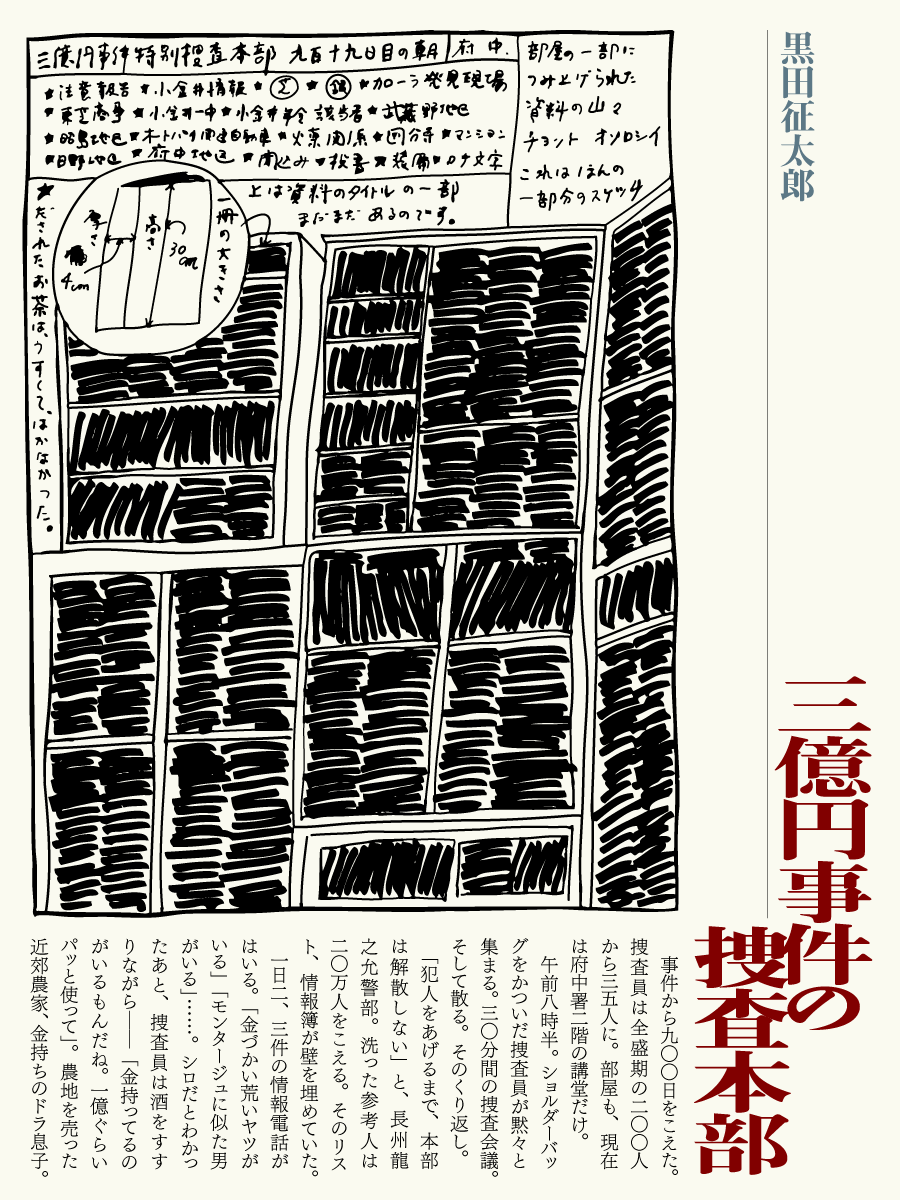 黒田征太郎
三億円事件の
捜査本部
三億円事件特別捜査本部 九百十九日目の朝
府中.
部屋の一部に
つみ上げられた
資料の山々
チョット オソロシイ
これはほんの
一部分のスケッチ
★注意報告 ★小金井情報 ★ ★ ★カローラ発見現場
★東芝商事 ★小金井一中 ★小金井年令該当者 ★武蔵野地区
★昭島地区 ★オートバイ関連自動車 ★火薬関係 ★国分寺 ★マンション
★日野地区 ★府中地区 ★聞込み ★投書 ★装備 ★ロケ文字
上は資料のタイトルの一部
まだまだあるのです。
一冊の大きさ
高さ
30cm
厚さ
4cm
★だされたお茶は、うすくて、はかなかった。
事件から九〇〇日をこえた。
捜査員は全盛期の二〇〇人
から三五人に。部屋も、現在
は府中署二階の講堂だけ。
午前八時半。ショルダーバッ
グをかついだ捜査員が黙々と
集まる。三〇分間の捜査会議。
そして散る。そのくり返し。
「犯人をあげるまで、本部
は解散しない」と、長州龍
之允警部。洗った参考人は
二〇万人をこえる。そのリス
ト、情報簿が壁を埋めていた。
一日二、三件の情報電話が
はいる。「金づかい荒いヤツが
いる」「モンタージュに似た男
がいる」……。シロだとわかっ
たあと、捜査員は酒をすす
りながら——「金持ってるの
がいるもんだね。一億ぐらい
パッと使って」。農地を売った
近郊農家、金持ちのドラ息子。